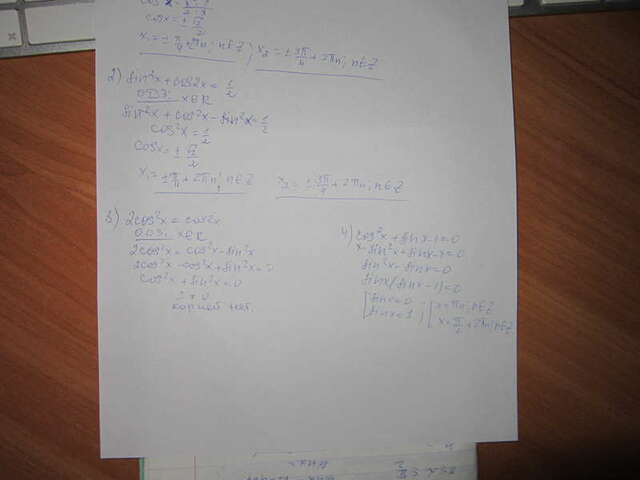 cosx = ± √2/2
x₁ = ± π/4 + 2πn; n∈Z ; x₂ = ± 3π/4 + 2πn; n∈Z
2) sin²x + cos2x = 1/2
ОДЗ: x∈R
sin²x + cos²x - sin²x = 1/2
cos²x = 1/2
cosx = ± √2/2
x₁ = ± π/4 + 2πn; n∈Z
x₂ = ± 3π/4 + 2πn; n∈Z
3) 2cos²x = cos2x
ОДЗ: x∈R
2cos²x = cos²x - sin²x
2cos²x - cos²x + sin²x = 0
cos²x + sin²x = 0
1 ≠ 0
корней нет.
4) cos²x + sinx - 1 = 0
sin²x - sinx = 0
sinx(sinx - 1) = 0
sinx = 0
sinx = 1 ;
x = πn; n∈Z
x = π/2 + 2πn; n∈Z